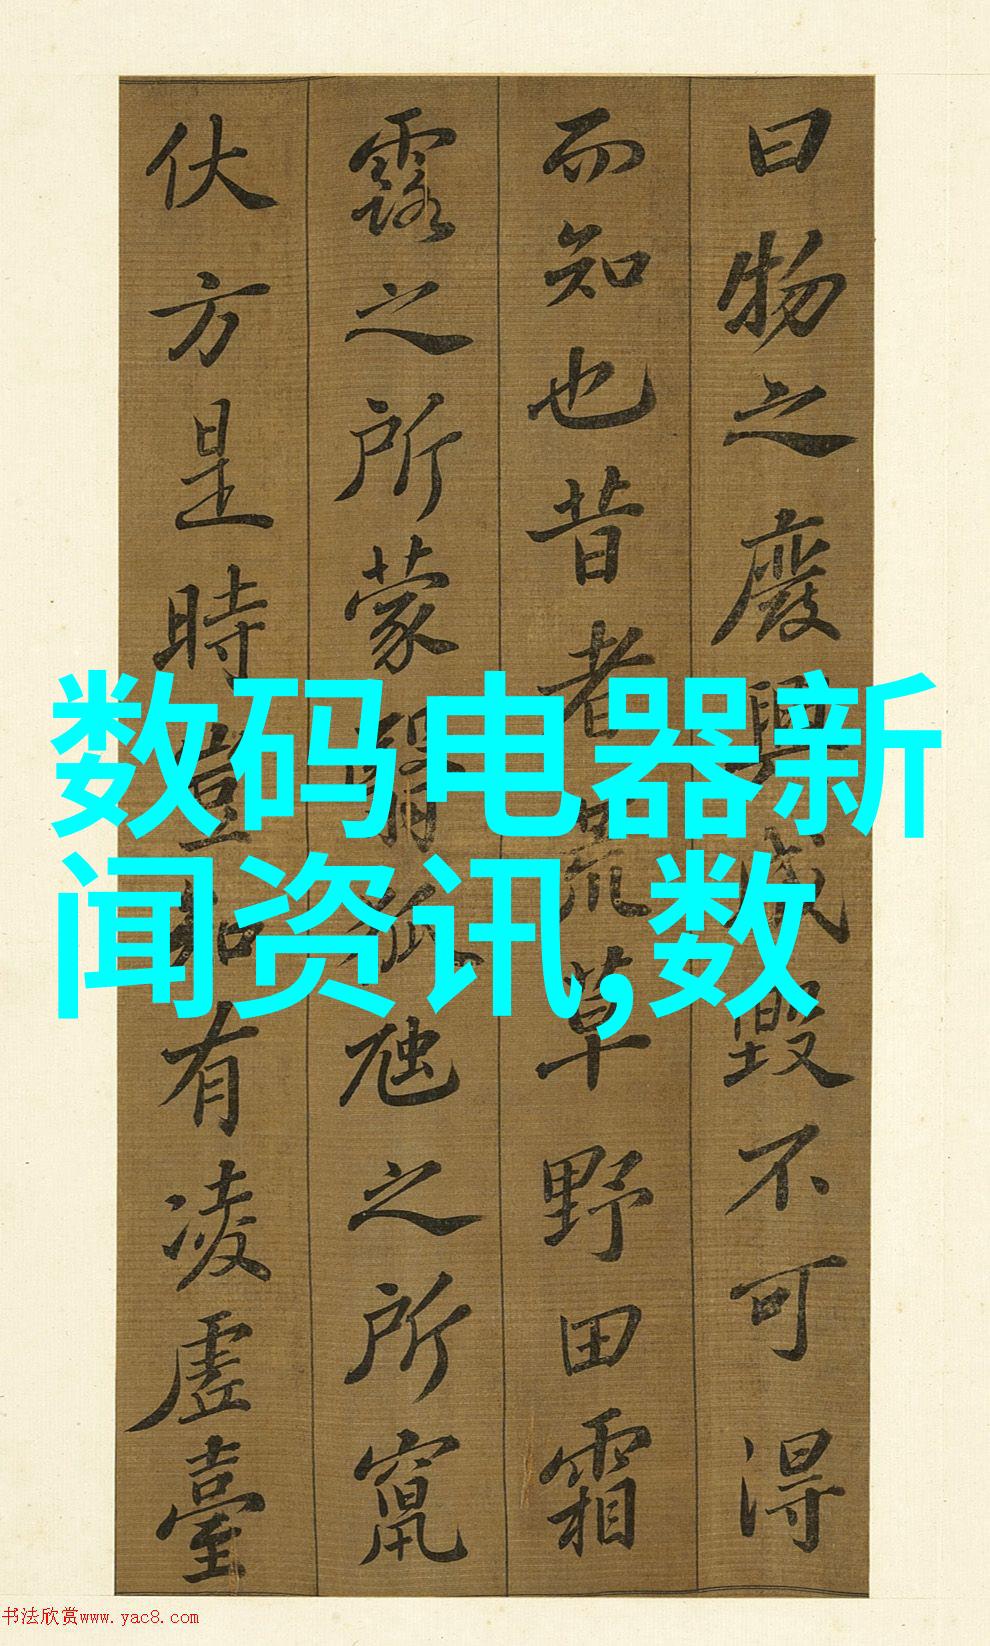 曰物之廢興成毀不可得
而知也昔者荒草野田霜
露之所蒙翳狐虺之所竄
伏方是時豈知有凌虛臺
数码电器新
闻资讯,数
书法欣赏www.yac8.com